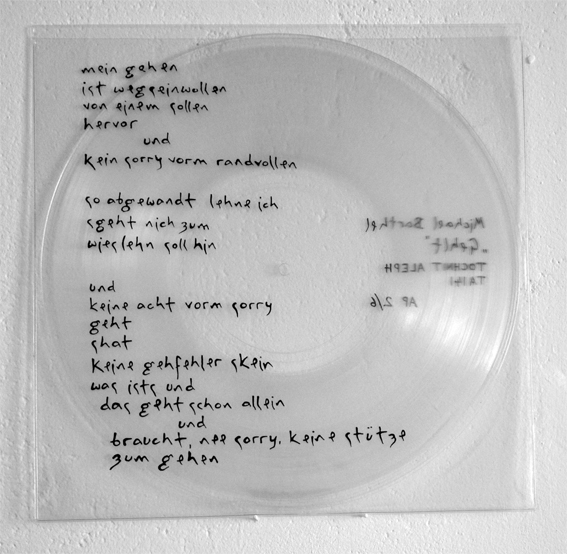 mein gehen
ist wegseinwollen
von einem sollen
hervor
und
kein sorry vorm randvollen
so abgewandt lehne ich
sgeht nich zum
wieslehn soll hin
und
keine acht vorm sorry
geht
shat
keine gehfehler skein
was ists und
das geht schon allein
und
braucht, nee sorry, keine stütze
zum gehen
Michael Barthel
„Gehlt"
TOCHNIT ALEPH
TA141
AP 2/6